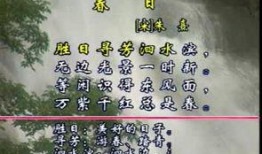 春 日
[宋]朱 熹
胜日寻芳泗水滨，
无边光景一时新。
等闲识得东风面，
万紫千红总是春。
胜日：美好的日子。
寻芳：游春、踏青